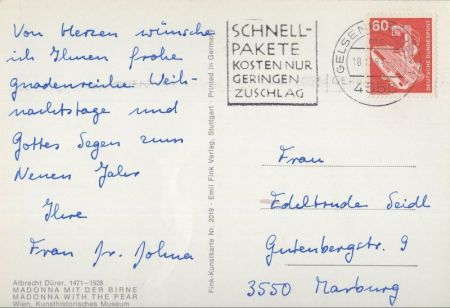 Von Herzen wünsche
ich Ihnen frohe
gnadenreiche Weih-
nachtstage und
Gottes Segen zum
Neuen Jahr
Ihre
Frau
Albrecht Dürer, 1471–1528
MADONNA MIT DER BIRNE
MADONNA WITH THE PEAR
Wien, Kunsthistorisches Museum
Fink-Kunstkarte Nr. 2019 - Emil Fink Verlag, Stuttgart - Printed in Germany
SCHNELL-
PAKETE
KOSTEN NUR
GERINGEN
ZUSCHLAG
GELSEN
18.
60
DEUTSCHE BUNDESPOST
Frau
Edeltrude Seidl
Gutenbergstr. 9
3550 Marburg